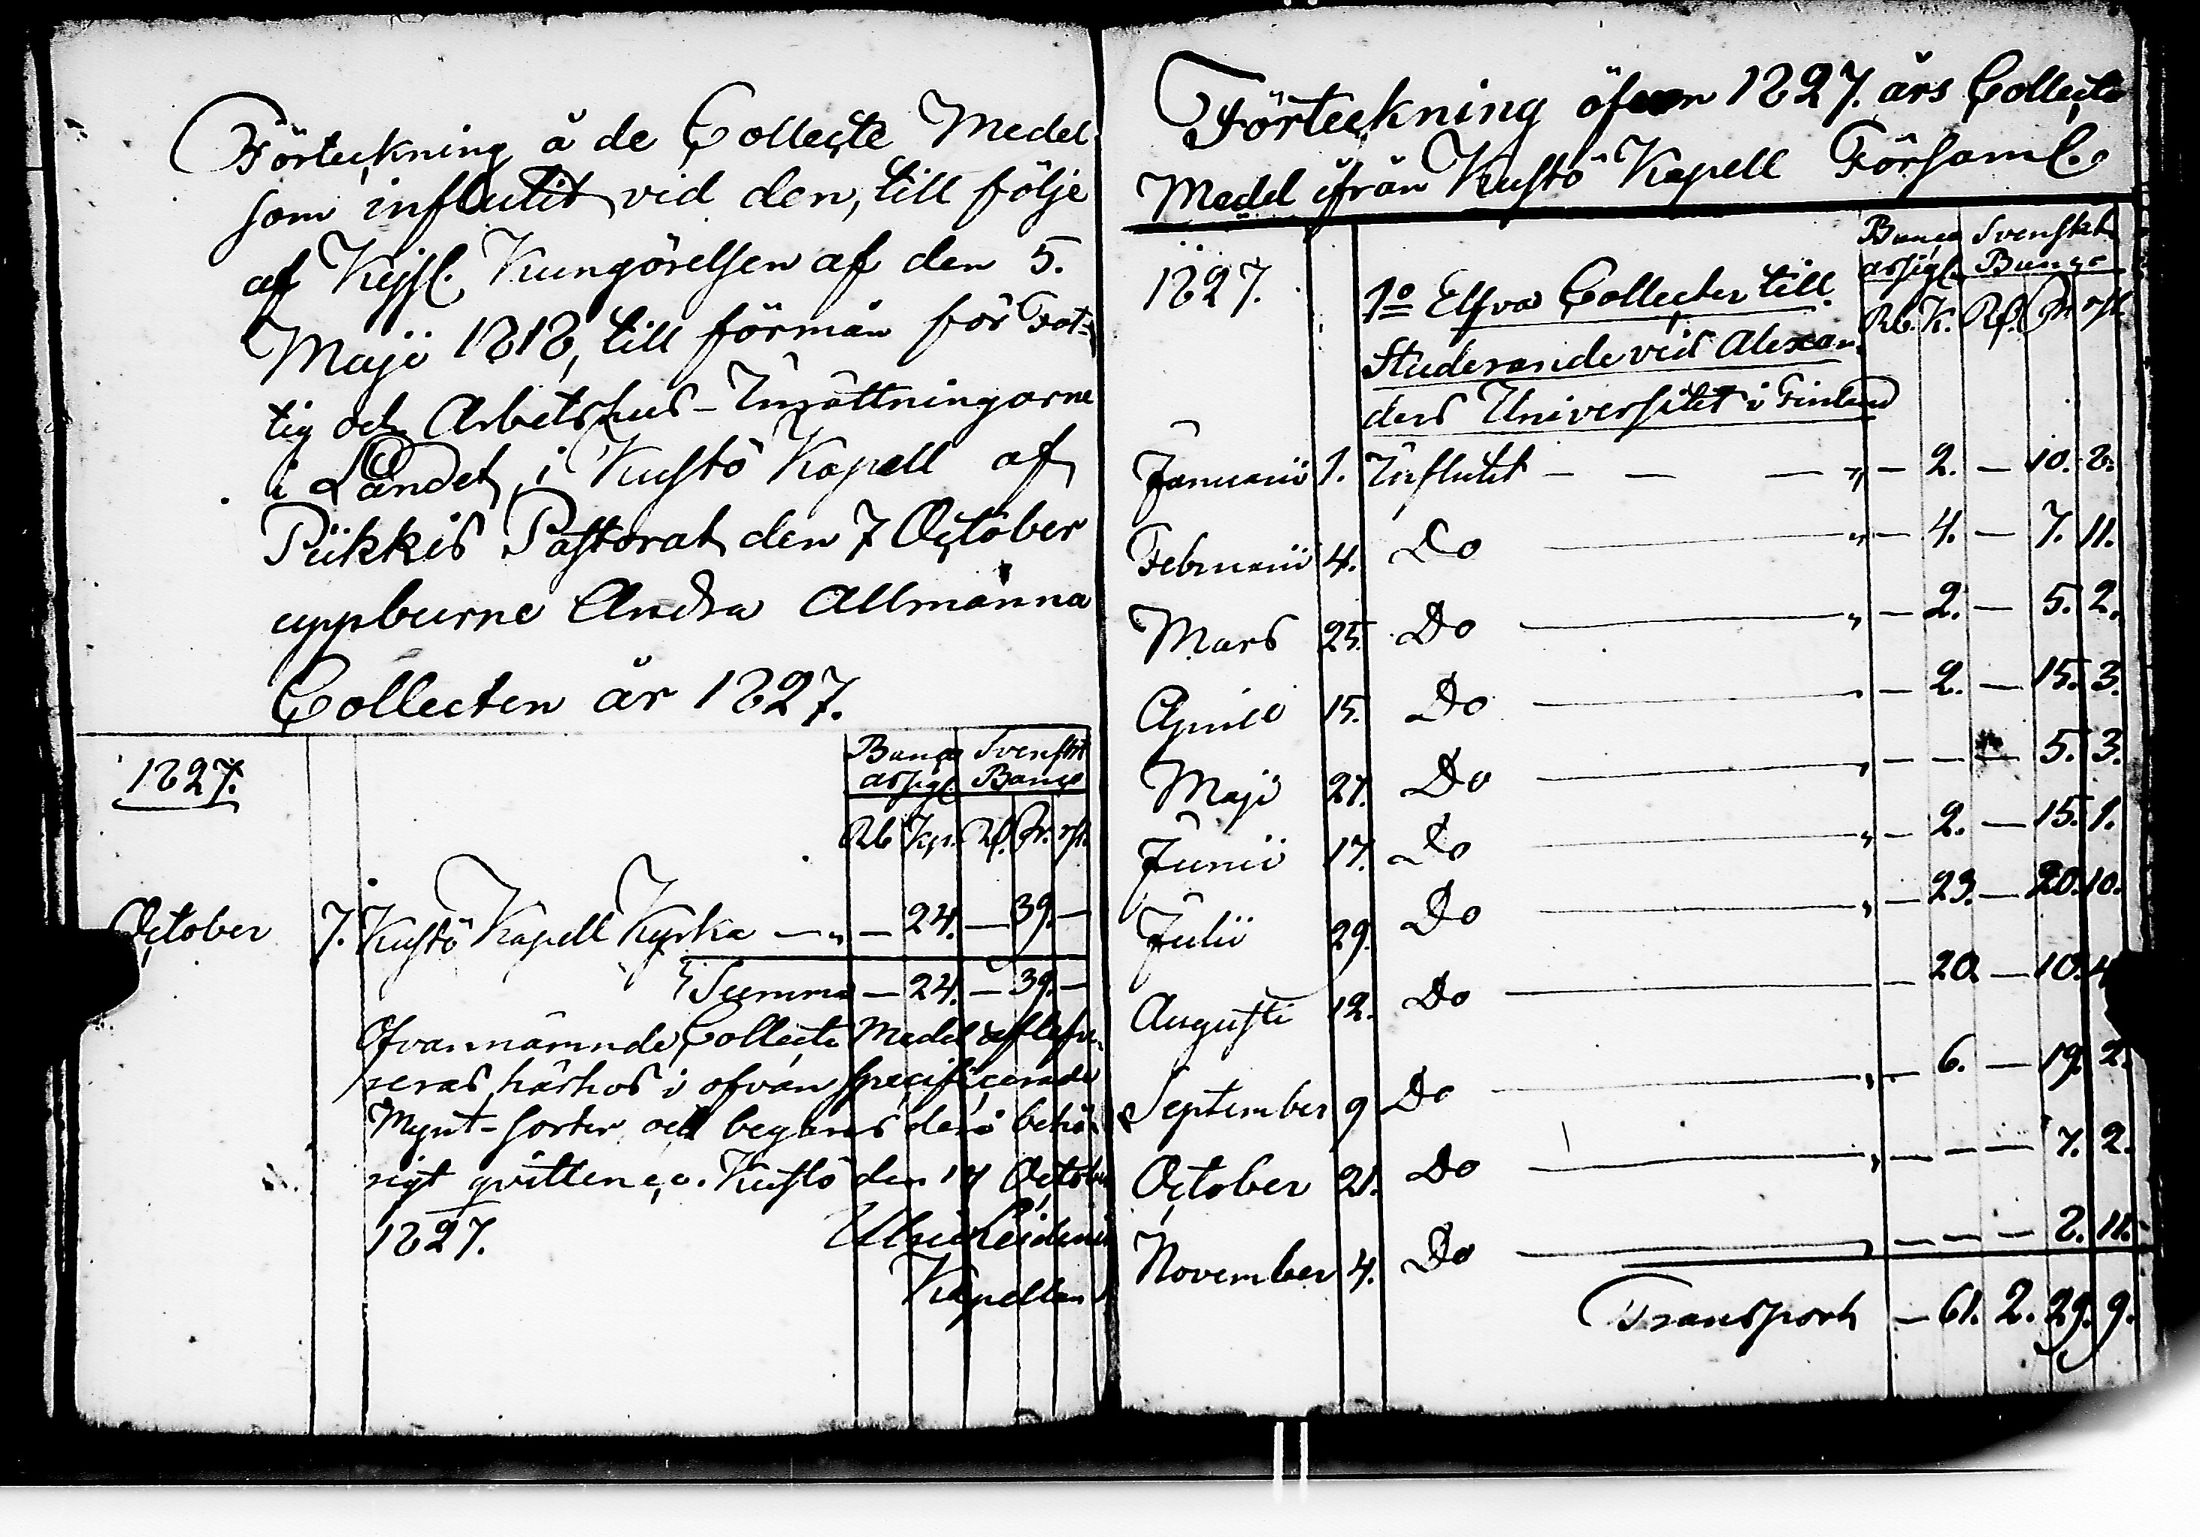 Förteckning å de Collecte Medel
som influtit vid den, till följe
af Kejsl. Kungörelsen af den 5.
Maji 1818, till förmån för Fat-
tig och Arbetshus-Inrättningarne
i Landet, i Kustö Kapell af
Piikkis Pastorat den 7 October
uppburne Andra Allmänna
Collecten år 1827.
1827. Banco assigl. Svenskt Banco
Rb Kp. Rd. Sk. rst.
October 7. Kustö Kapell Kyrka — „ — 24. — 39. —
Summa — 24. — 39. —
Ofvannämnde Collecte Medel aflefve-
reras härhos i ofvan specificerade
Mynt-sorter och begäres derå behö-
rigt qvittence. Kustö den 17 October
1827. Ulric Leidenius
Kapellan
Förteckning öfver 1827. års Collecte
Medel ifrån Kustö Kapell Församl.
1827. Banco assigl. Svenskt Banco
1o Elfva Collecter till Rb. K. Rd. Sk. rst.
Studerande vid Alexan-
ders Universitet i Finland
Januarii 1. Influtit — — — „ — 2. — 10. 8.
Februarii 4. Do — „ — 4. — 7. 11.
Mars 25. Do — „ — 2. — 5. 2.
Aprill 15. Do — „ — 2. — 15. 3.
Maji 27. Do — „ — — — 5. 3.
Junii 17. Do — „ — 2. — 15. 1.
Julii 29. Do — „ — 23. — 20. 10.
Augusti 12. Do — 20. — 10. 4.
September 9 Do — „ — 6. — 19. 2.
October 21. Do — „ — — — 7. 2.
November 4. Do — „ — — — 8. 11.
Transport — 61. 2. 29. 9.